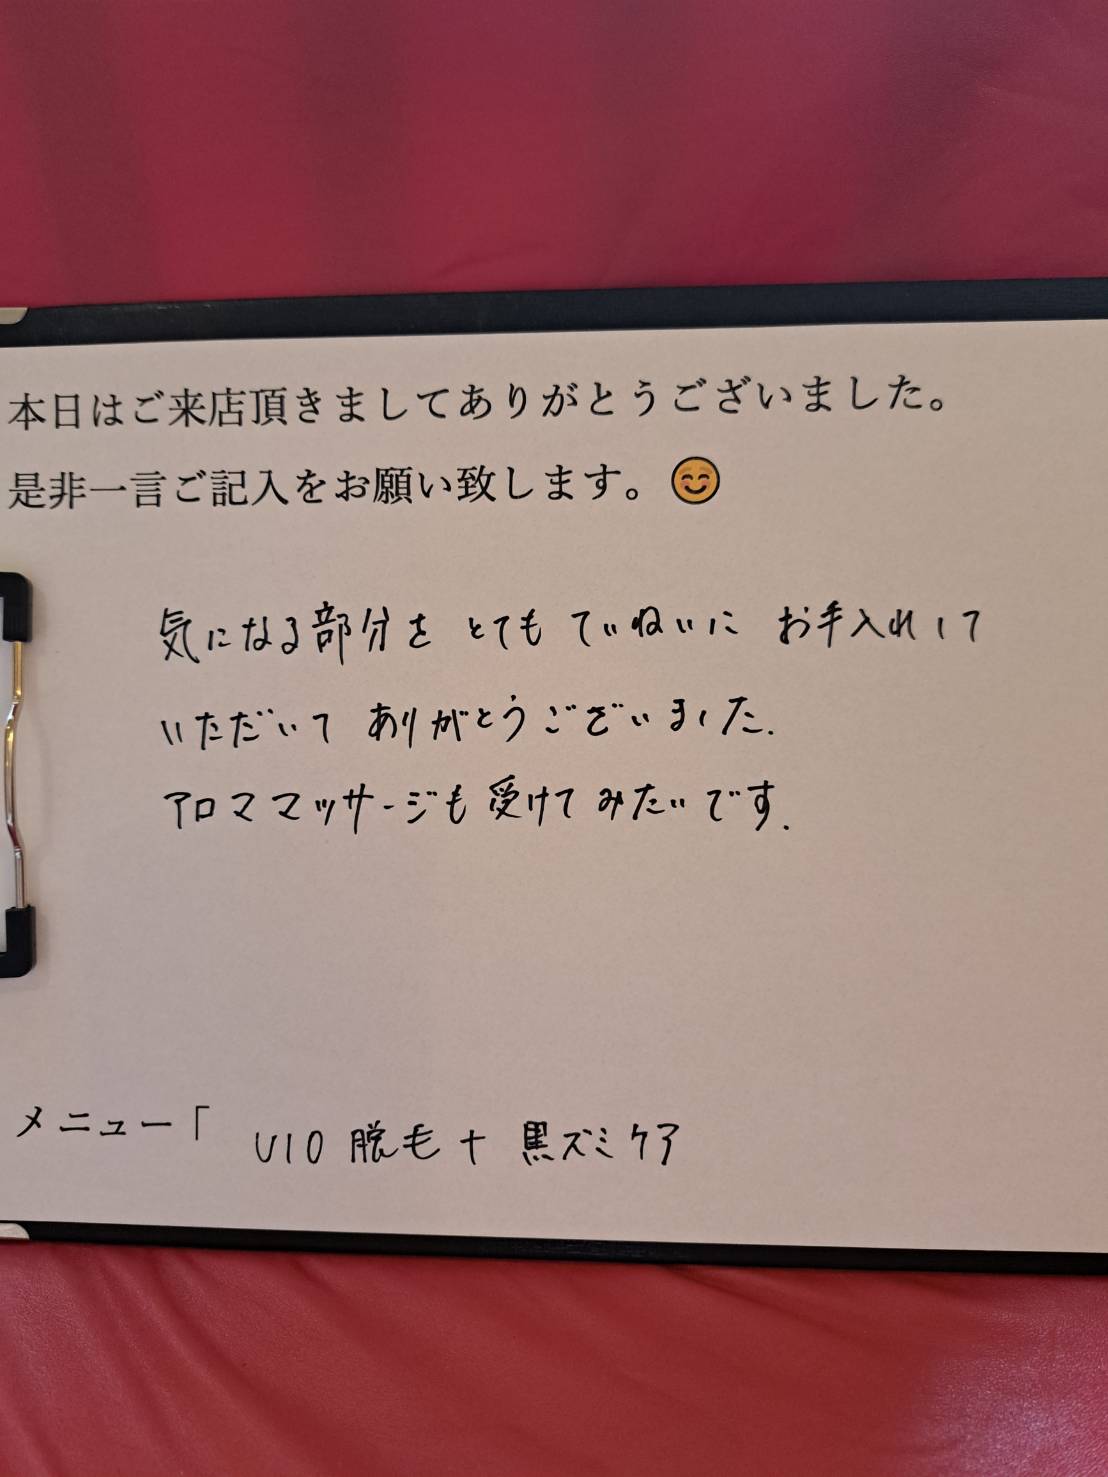 本日はご来店頂きましてありがとうございました。
是非一言ご記入をお願い致します。😊
気になる部分を とても ていねいに お手入れして
いただいて ありがとうございました.
アロママッサージも 受けて みたいです.
メニュー「 VIO 脱毛 + 黒ズミケア